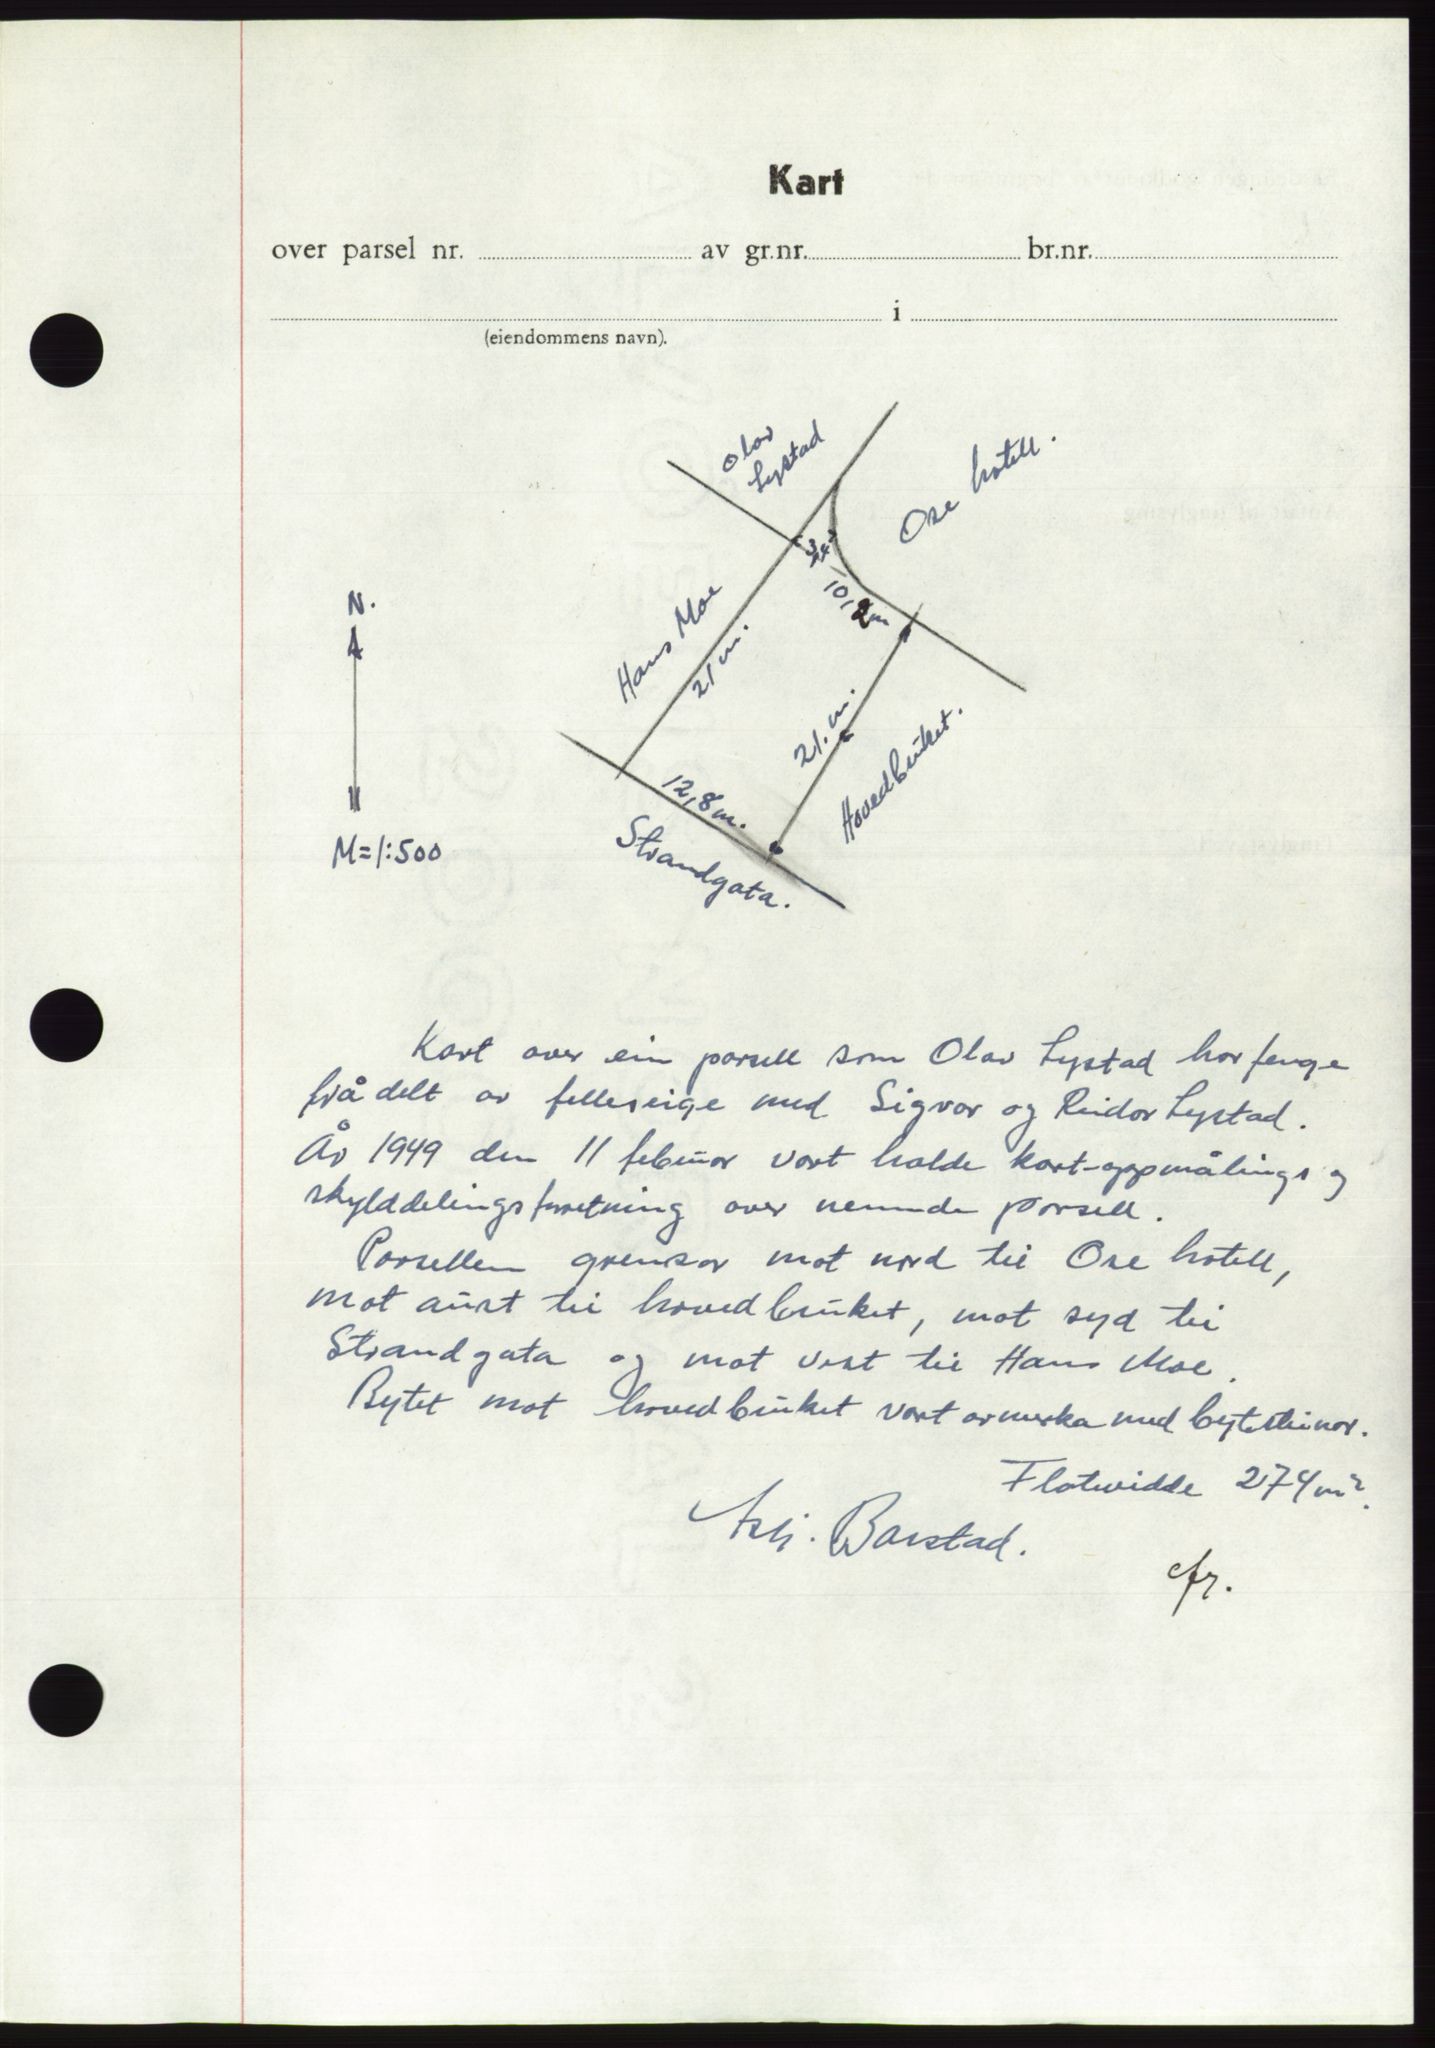 Kart
over parsel nr. av gr.nr. br.nr.
i
(eiendommens navn).
Olav
Lystad
Ose hotell.
N.
10,2m
Hans Moe
21 m.
21. m.
Hovedbruket.
12,8 m.
Strandgata.
M=1:500
Kart over ein parsell som Olav Lystad har fenge
frå delt av felleseige med Sigvar og Reidar Lystad.
År 1949 den 11 februar vart halde kart-oppmålings og
skylddelingsforretning over nemnde parsell.
Parsellen grensar mot nord til Ose hotell,
mot aust til hovedbruket, mot syd til
Strandgata og mot vest til Hans Moe.
Bytet mot hovedbruket vart avmerka med bytesteinar.
Flatevidde 274 m².
Asbj. Barstad.
cfr.